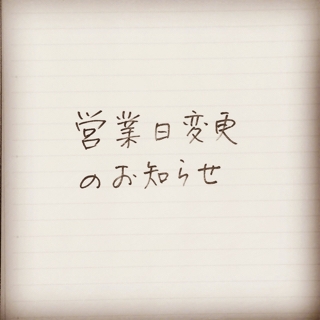 営業日変更
のお知らせ